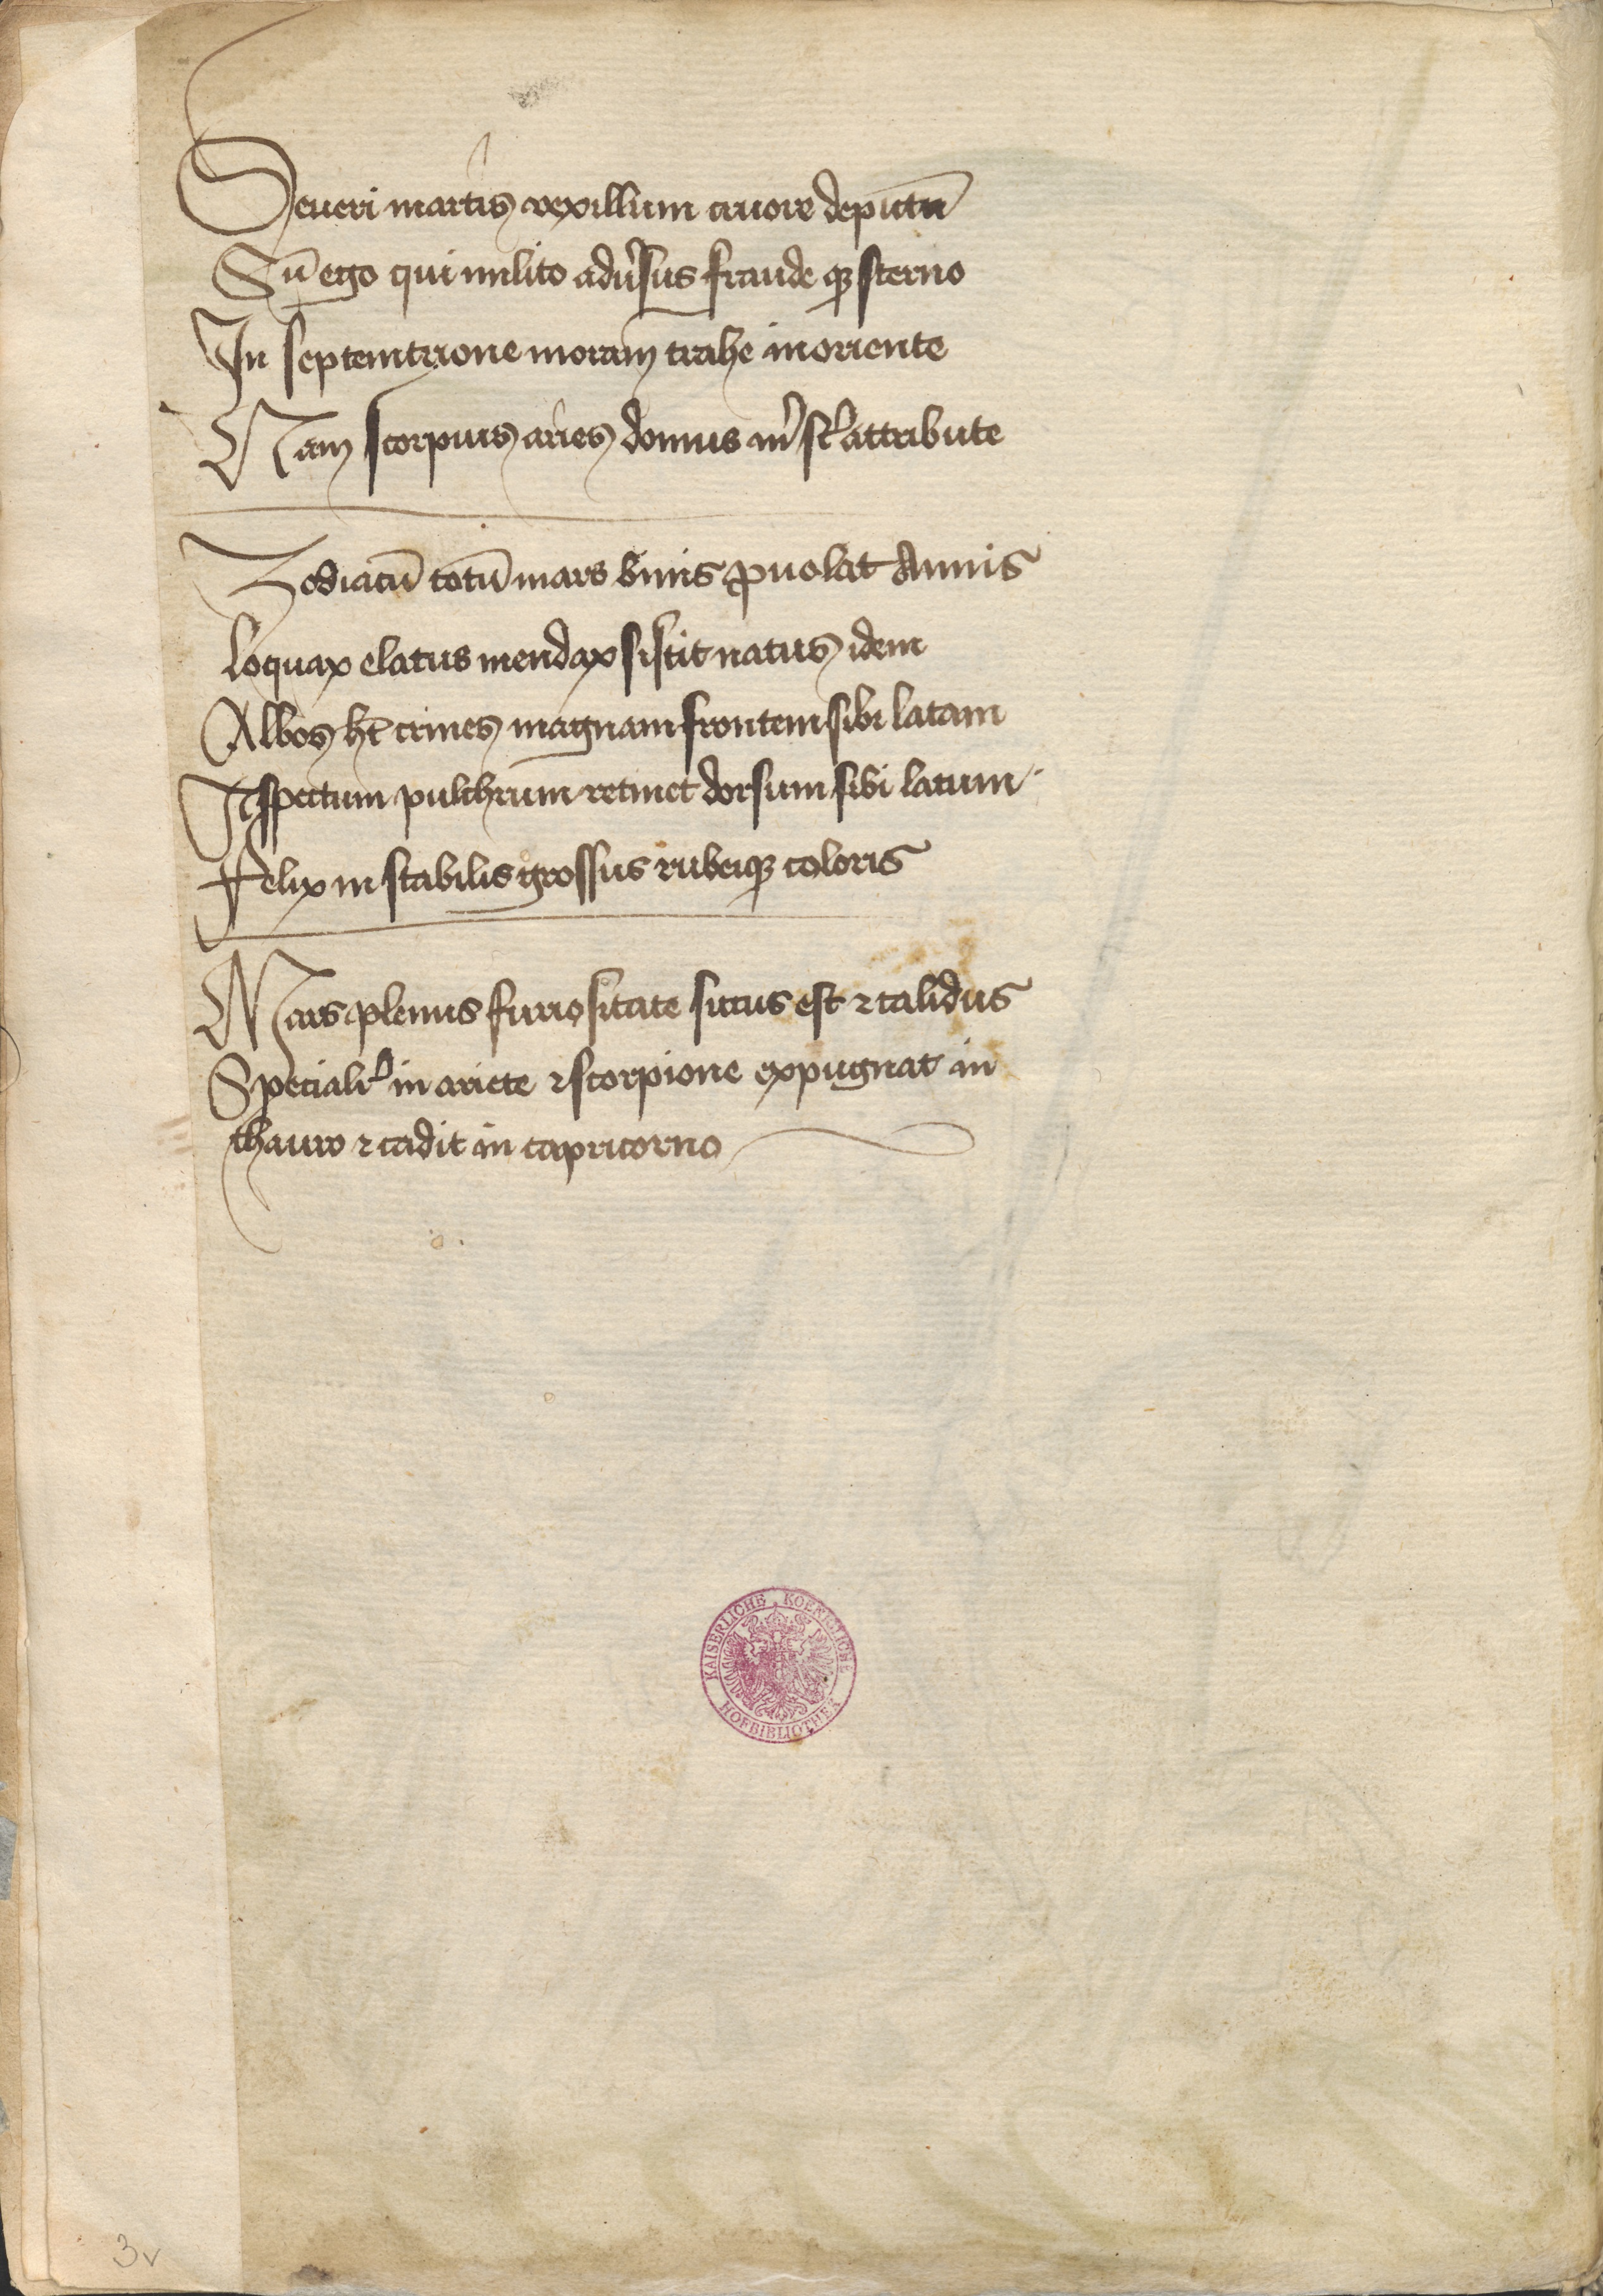 Seueri martis vexillum cruore depictũ
Sũ ego qui milito aduˀsus fraude qꝫ sterno
In septemtrione moram trahe in oriente
Nam scorpius aries domus mˀ sˀt attribute
Zodiacũ totũ mars binis ꝑuolat Annis
Loquax elatus mendax sistit natus idem
Albos ht̃ crines magnam frontem sibi latam
Aspectum pulchrum retinet dorsum sibi latum
Felix in stabilis grossus rubeiqꝫ coloris
Mars plenus furiositate siccus est ⁊ calidus
Specialr̃ in ariete ⁊ scorpione expugnat in
thauro ⁊ cadit in capricorno
KAISERLICHE KOENIGLICHE
HOFBIBLIOTHEK
3v